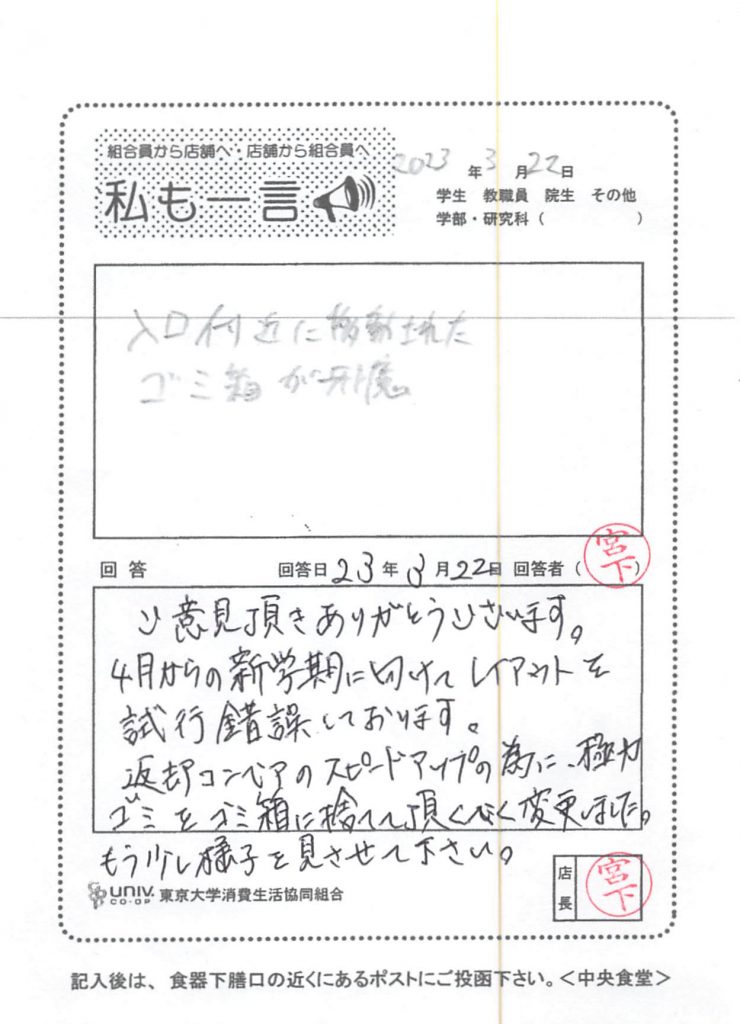 組合員から店舗へ・店舗から組合員へ
私も一言
2023年3月22日
学生 教職員 院生 その他
学部・研究科（ ）
入口付近に移動された
ゴミ箱が邪魔。
回答 回答日23年3月22日 回答者（宮下）
ご意見頂きありがとうございます。
4月からの新学期に向けてレイアウトを
試行錯誤しております。
返却コンベアのスピードアップの為に、極力
ゴミをゴミ箱に捨てて頂くべく変更しました。
もう少し様子を見させて下さい。
UNIV. CO-OP 東京大学消費生活協同組合
店長 宮下
記入後は、食器下膳口の近くにあるポストにご投函下さい。＜中央食堂＞